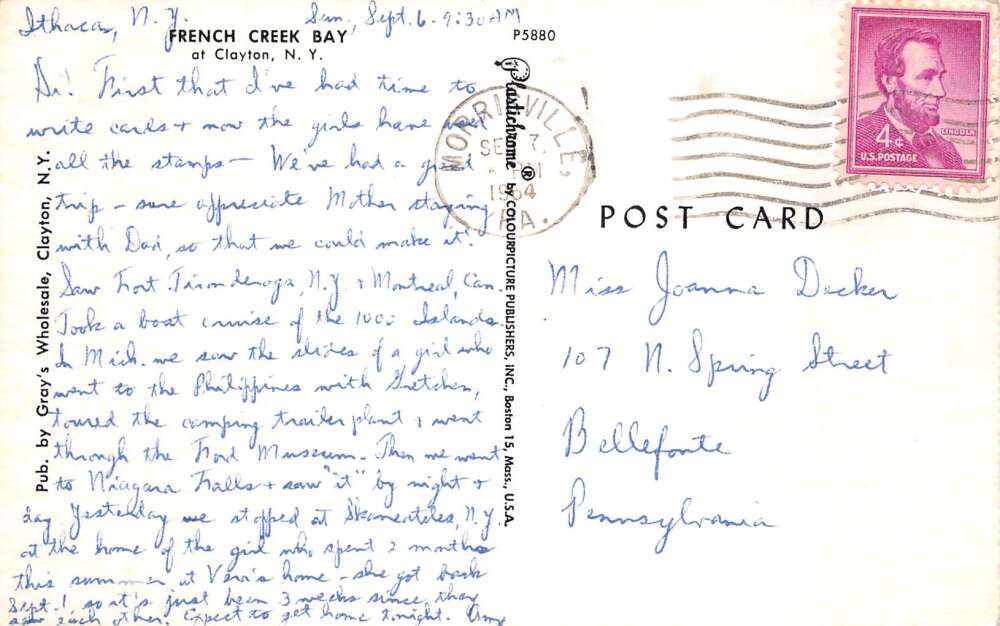 Ithaca, N.Y. Sun., Sept. 6 - 9:30 AM
FRENCH CREEK BAY
at Clayton, N. Y.
P5880
Hi! First that I've had time to
write cards + now the girls have used
all the stamps — We've had a good
trip - sure appreciate Mother staying
with Dad, so that we could make it.
Saw Fort Ticonderoga, N.Y + Montreal, Can.
Took a boat cruise of the 1000 Islands.
In Mich. we saw the slides of a girl who
went to the Philippines with Gretchen,
toured the camping trailer plant + went
through the Ford Museum. Then we went
to Niagara Falls + saw "it" by night +
day. Yesterday we stopped at Skaneateles, N.Y.
at the home of the girl who spent 2 months
this summer at Vera's home - she got back
Sept. 1 so it's just been 3 weeks since they
saw each other. Expect to get home tonight.
Pub. by Gray's Wholesale, Clayton, N. Y.
Plastichrome ® by COLOURPICTURE PUBLISHERS, INC., Boston 15, Mass., U.S.A.
MORRISVILLE,
SEP 7
PM
1964
PA.
4¢
LINCOLN
U.S. POSTAGE
POST CARD
Miss Joanna Decker
107 N. Spring Street
Bellefonte
Pennsylvania